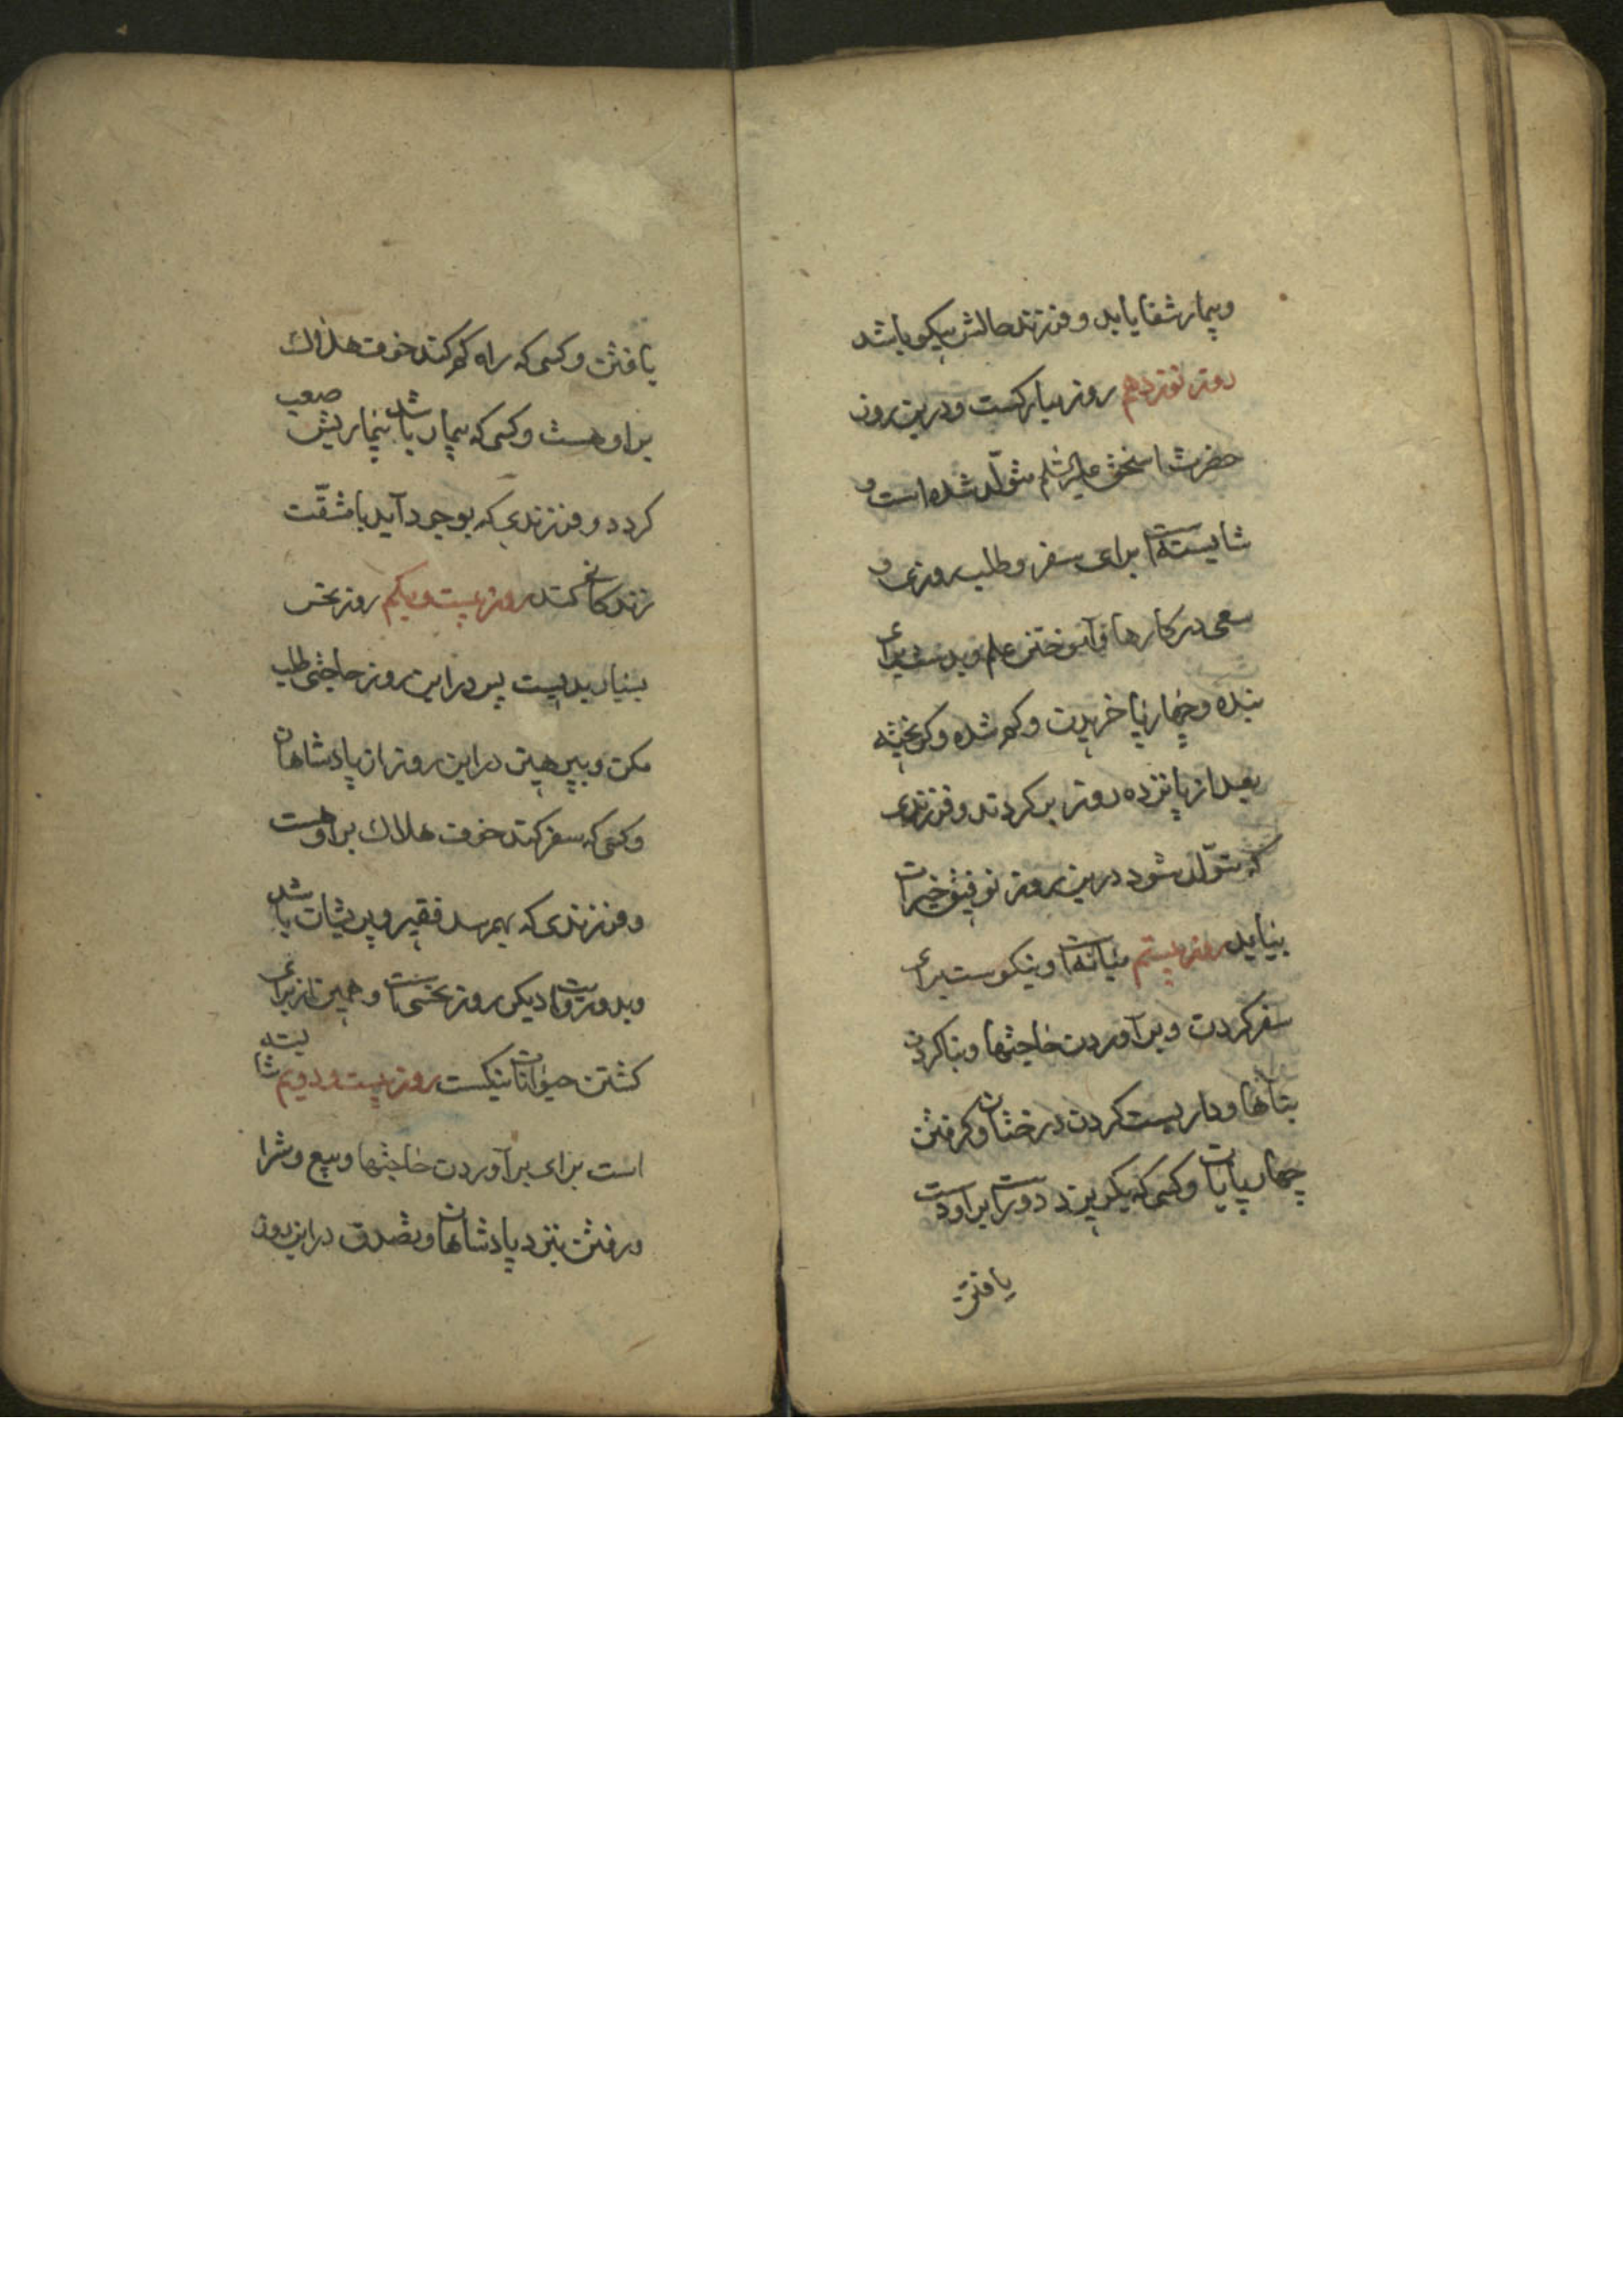 وبیمار شفا یابد و فرزند حالش نیکو باشد
روز نوزدهم روز مبارکست و درین روز
حضرت اسحق علیه السلم متولّد شده است و
شایسته است برای سفر و طلب روزی و
سعی در کارها و آموختن علم و بدست برای
بنده و چهارپا خریدن و کم شده و کریخته
بعد از پانزده روز بر کردند و فرزندی
که متولّد شود درین روز توفیق خیرات
بیابد روز بیستم میانه است و نیکوست برای
سفر کردن و برآوردن حاجتها و بنا کردن
بناها و داربست کردن درختان و کرفتن
چهارپایان و کسی که بکریزد دور است براو دست
یافتن
یافتن و کسی که راه کم کند خوف هلاک
براو هست و کسی که بیمار باشد بیماریش صعب
کردد و فرزندی که بوجود آید با مشقّت
زندکانی کند روز بیست و یکم روز نحس
بسیار بدیست پس در این روز حاجتی طلب
مکن و بپرهیز در این روز از پادشاهان
و کسی که سفر کند خوف هلاک براو هست
و فرزندی که بهم رسد فقیر و پریشان باشد
وبدو روایت دیکر روز نحسی است و همین از برای
کشتن حیوانات نیکست روز بیست و دویم شایسته
است برای برآوردن حاجتها و بیع و شرا
و رفتن بنزد پادشاهان و تصدق در این روز